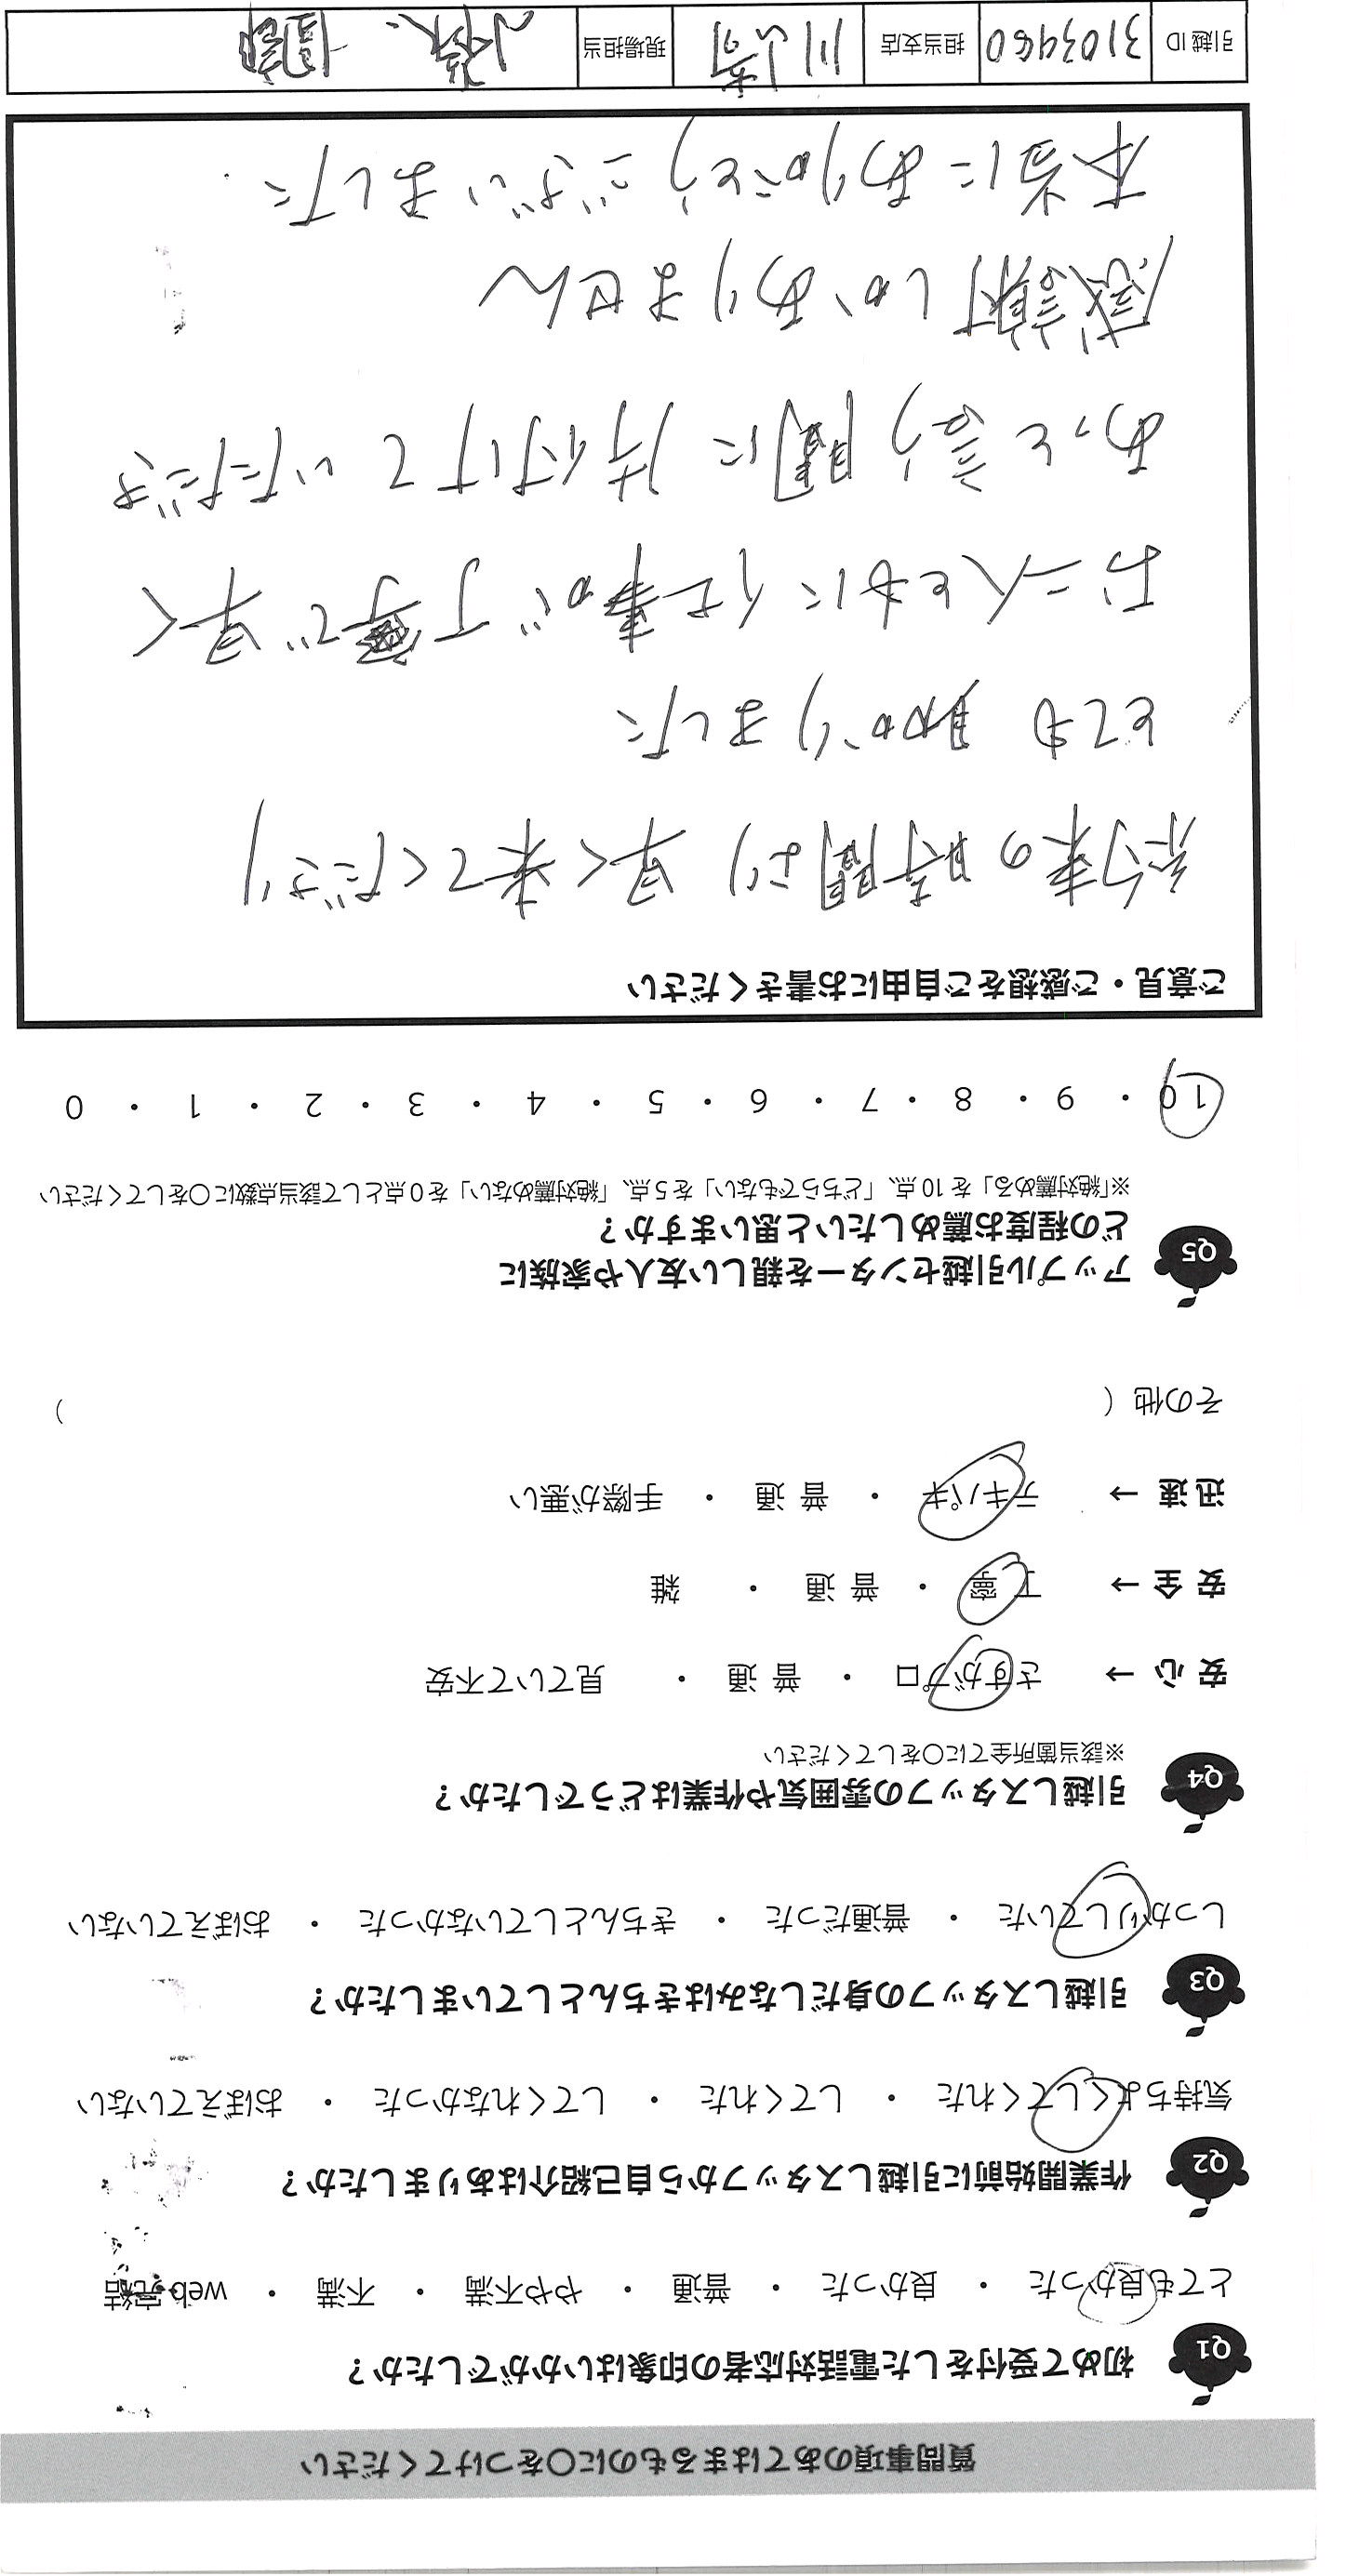 質問事項のあてはまるものに〇をつけてください
Q1 初めて受付をした電話対応者の印象はいかがでしたか？
とても良かった ・ 良かった ・ 普通 ・ やや不満 ・ 不満 ・ web完結
Q2 作業開始前に引越しスタッフから自己紹介はありましたか？
気持ちよくしてくれた ・ してくれた ・ してくれなかった ・ おぼえていない
Q3 引越しスタッフの身だしなみはきちんとしていましたか？
しっかりしていた ・ 普通だった ・ きちんとしていなかった ・ おぼえていない
Q4 引越しスタッフの雰囲気や作業はどうでしたか？
※該当箇所全てに〇をしてください
安心 → さすがプロ ・ 普通 ・ 見ていて不安
安全 → 丁寧 ・ 普通 ・ 雑
迅速 → テキパキ ・ 普通 ・ 手際が悪い
その他（ ）
Q5 アップル引越センターを親しい友人や家族に
どの程度お薦めしたいと思いますか？
※「絶対薦める」を10点、「どちらでもない」を5点、「絶対薦めない」を0点として該当点数に〇をしてください
10 ・ 9 ・ 8 ・ 7 ・ 6 ・ 5 ・ 4 ・ 3 ・ 2 ・ 1 ・ 0
ご意見・ご感想をご自由にお書きください
約束の時間より早く来てくださり
とても助かりました
お二人ともに仕事が丁寧で早く
あっと言う間に片付けていただき
感謝しかありません
本当にありがとうございました.
引越ID 3103460 担当支店 川崎 現場担当 小